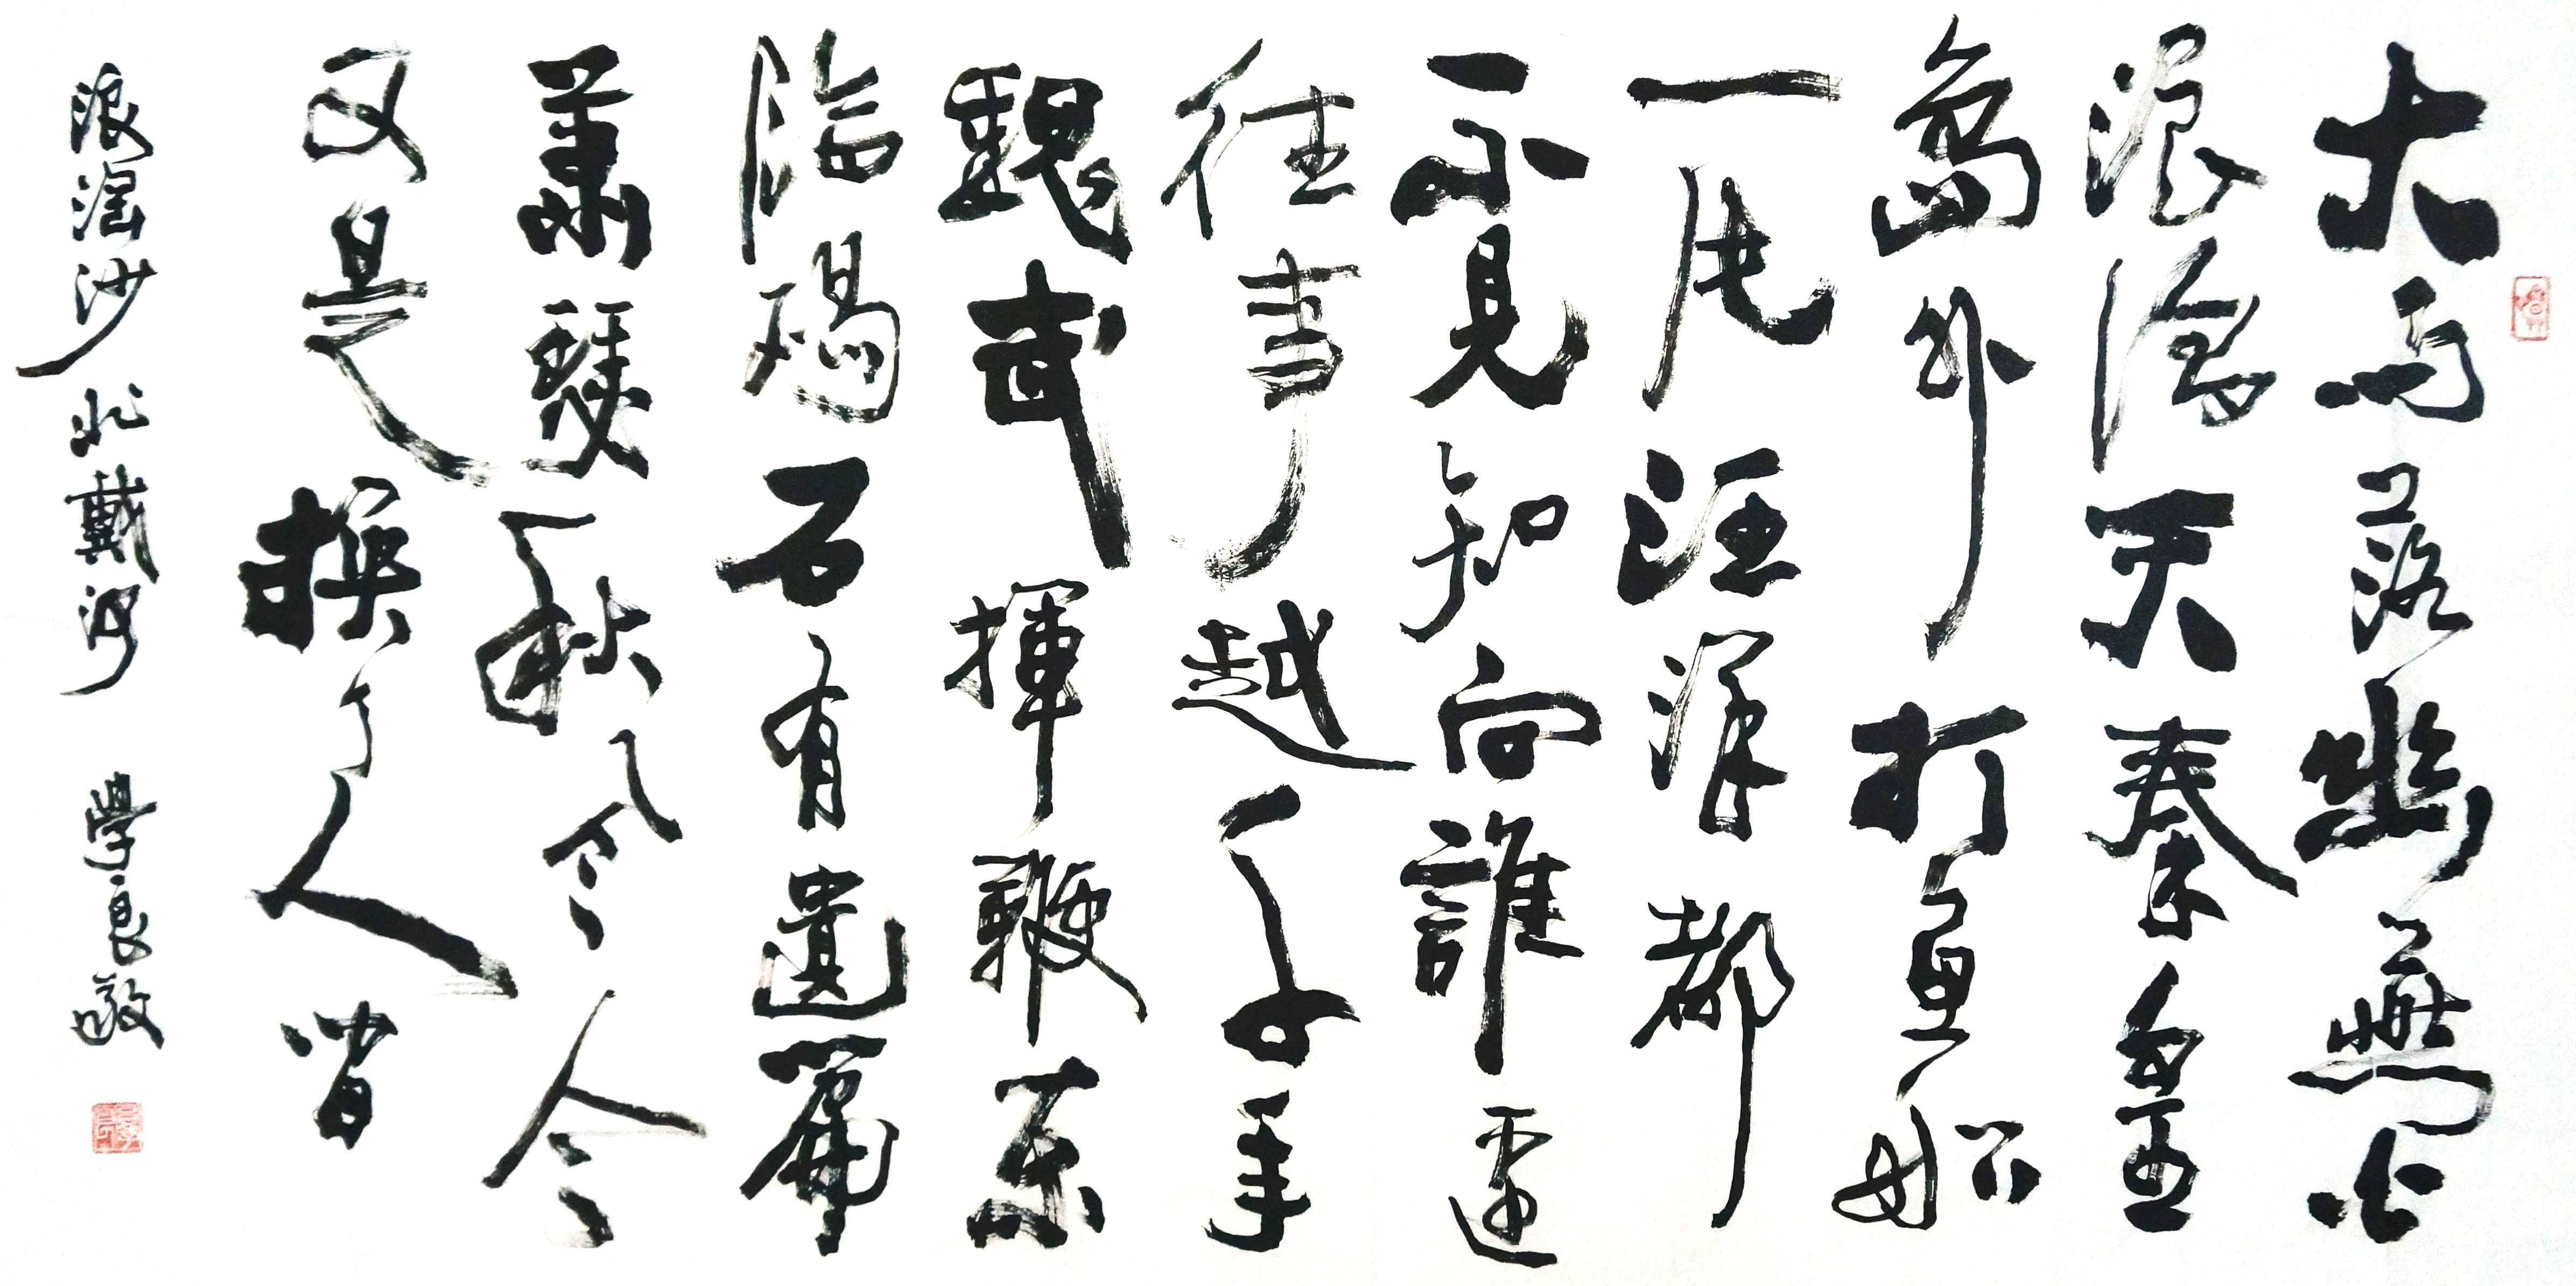 大雨落幽燕白
浪滔天秦皇
島外打魚船
一片汪洋都
不見知向誰邊
往事越千年
魏武揮鞭東
臨碣石有遺篇
蕭瑟秋風今
又是換了人間
浪淘沙 北戴河 學良敬